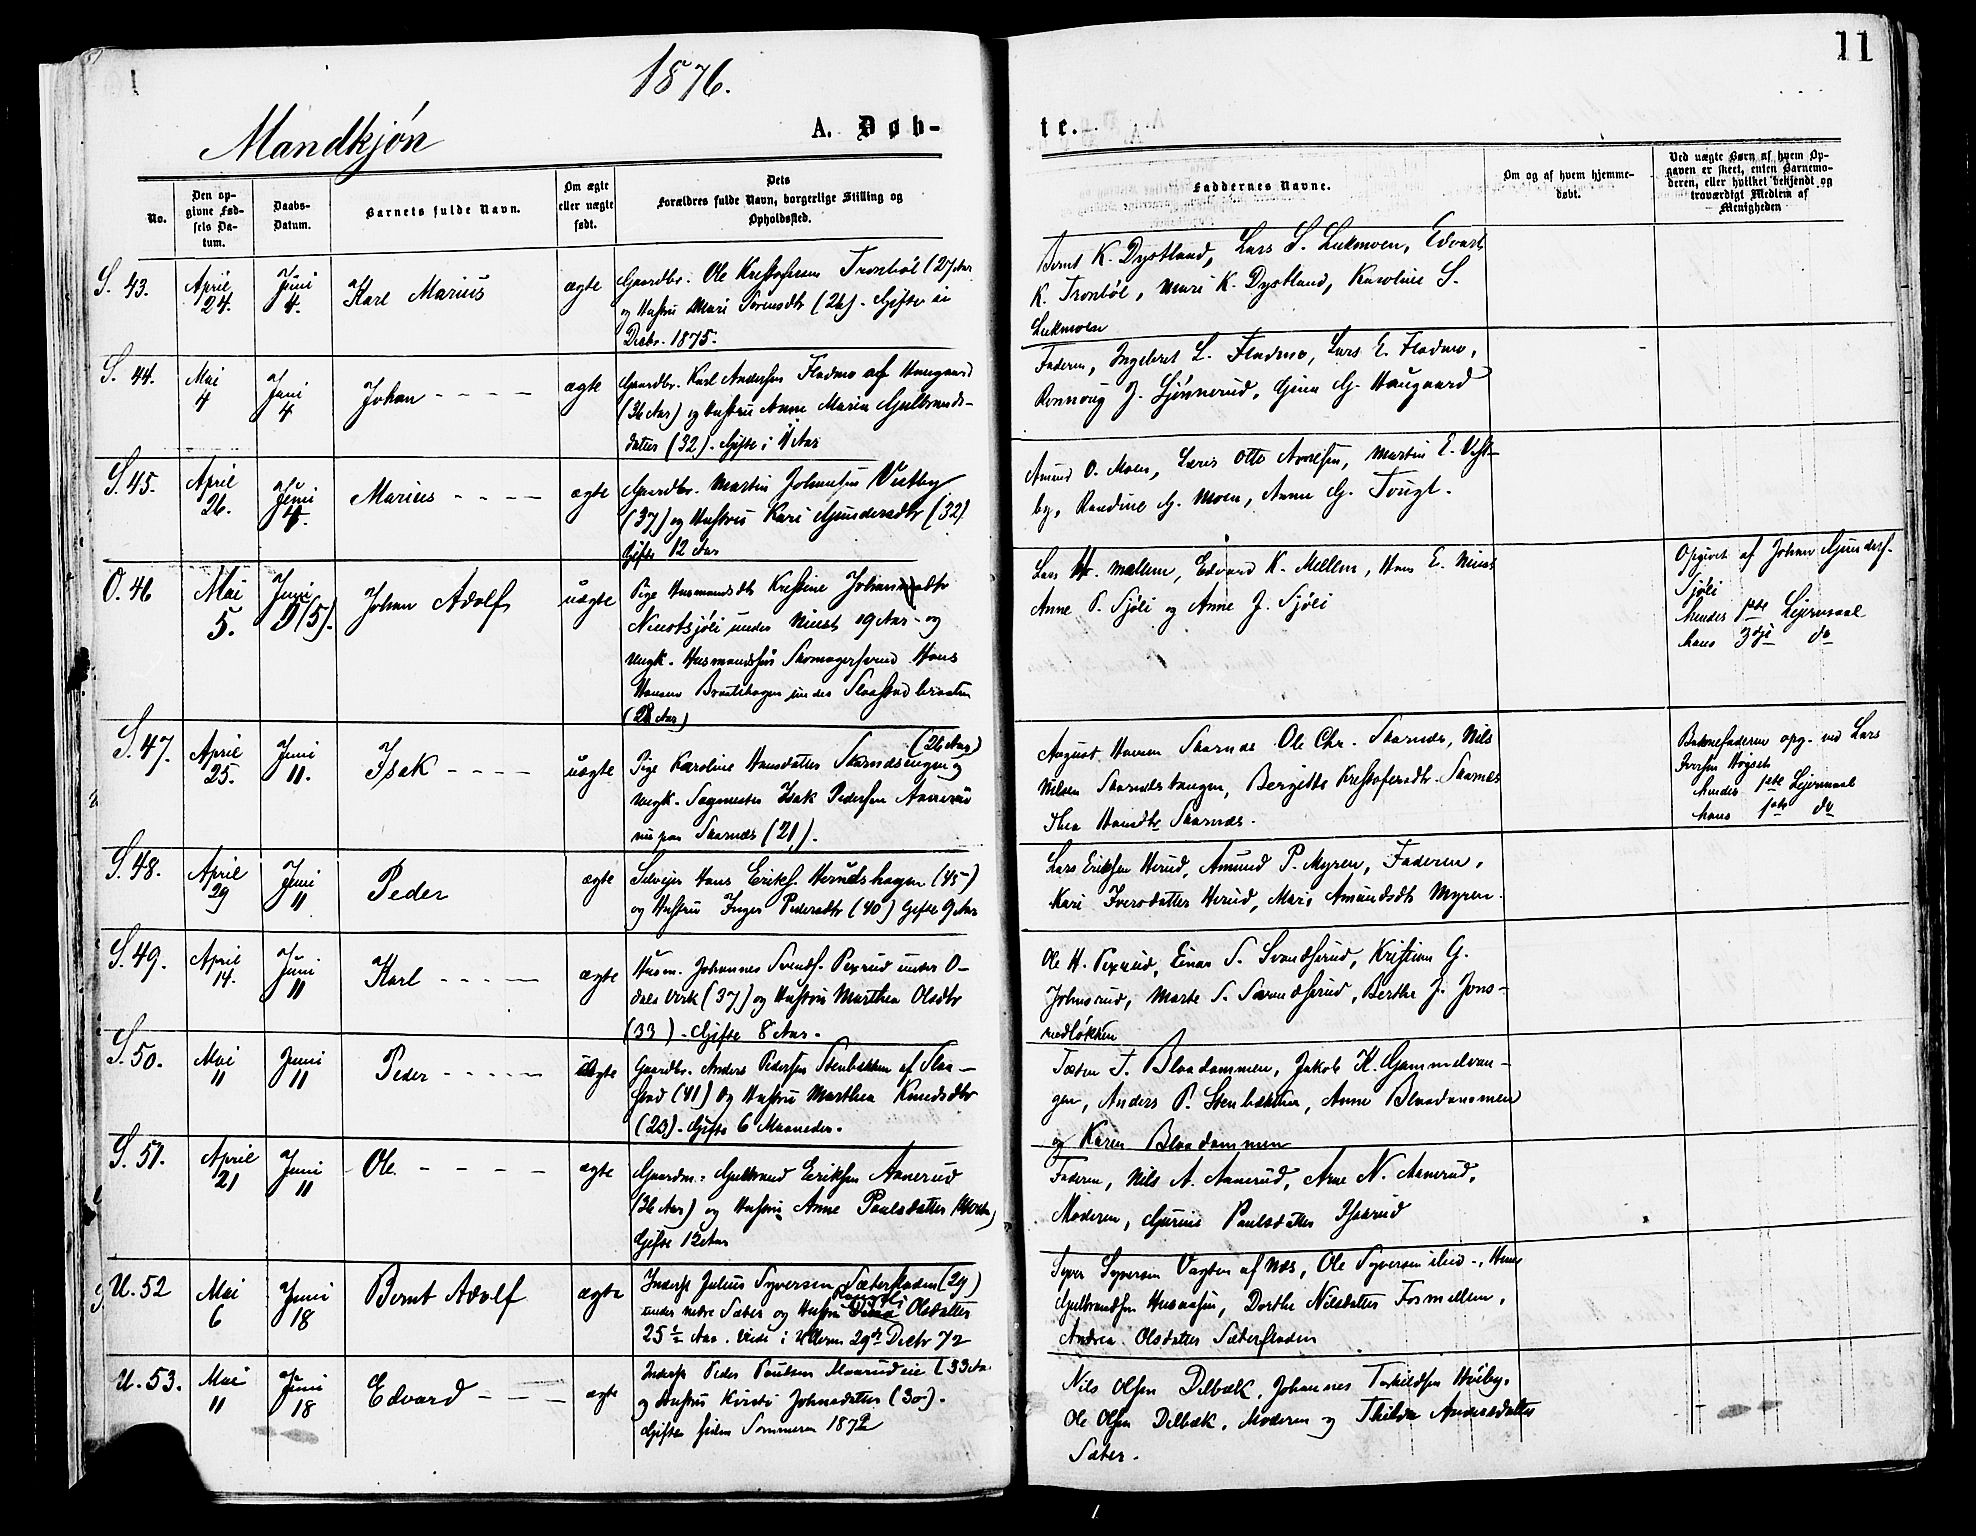 1876.
11
Mandkjøn
A. Døb-
te.
No.
Den op-
givne Fød-
sels Da-
tum.
Daabs-
Datum.
Barnets fulde Navn.
Om ægte
eller uægte
født.
Dets
Forældres fulde Navn, borgerlige Stilling og
Opholdssted.
Faddernes Navne.
Om og af hvem hjemme-
døbt.
Ved uægte Børn af hvem Op-
gaven er skeet, enten Barnemo-
deren, eller hvilket bekjendt og
troværdigt Medlem af
Menigheden
S. 43.
April
24.
Juni
4.
Karl Marius
ægte
Gaardbr. Ole Kristofersen Tronbøl (27 Aar
og Hustru Mari Sørensdtr (26). Gifte i
Decbr. 1875.
Bernt K. Dystland, Lars S. Lukmoen, Edvart
K. Tronbøl, Mari K. Dystland, Karoline S.
Lukmoen
S. 44.
Mai
4
Juni
4
Johan
ægte
Gaardbr. Karl Andersen Fladmo af Haugaard
(36 Aar) og Hustru Anne Maria Gulbrands-
datter (32). Gifte i 11 Aar
Faderen, Ingebret L. Fladmo, Lars E. Fladmo,
Ronnoug J. Sjønnerud, Gina G. Haugaard
S. 45.
April
26.
Juni
4.
Marius
ægte
Gaardbr. Martin Johnsen Vestby
(37) og Hustru Kari Gundersdtr (32)
Gifte 12 Aar
Amund O. Moen, Otto Arnesen, Martin E. Vest-
by, Randine G. Moen, Anne G. Tougt.
O. 46
Mai
5.
Juni
5 (5).
Johan Adolf
uægte
Pige Husmandsdtr Kristine Johannesdtr
under 19 Aar og
Ungk. Husmandssøn Skomagersvend Hans
Hansen Braatehagen under Slaastad
(28 Aar)
Lars H. Mellem, Edvard K. Mellem, Hans E.
Anne P. Sjøli og Anne J. Sjøli
Opgivet af Johan Gunders.
Sjøli
hendes 1ste Leiermaal
hans 3die do
S. 47.
April
25.
Juni
11.
Isak
uægte
(26 Aar)
Pige Karoline Hansdatter Skarnæsengen og
Ungk. Sagmester Isak Pedersen Aanerud
nu paa Skarnæs (21).
August Hansen Skarnæs Ole Chr. Skarnæs, Nils
Nilsen Skarnæstangen, Bergitte Kristofersdtr. Skarnæs
Thea Hansdtr Skarnæs.
Barnefaderen opg. ved Lars
Iversen Hogset
hendes 1ste Leiermaal
hans 1ste do
S. 48.
April
29
Juni
11
Peder
ægte
Selveier Hans Eriks. Herudshagen (45)
og Hustru Inger Pedersdtr (40) Gifte 9 Aar
Lars Eriksen Herud, Amund P. Myren, Faderen,
Kari Iversdatter Herud, Mari Amundsdtr Myren.
S. 49.
April
14.
Juni
11
Karl
ægte
Husm. Johannes Svends. Pexrud under O-
dals Verk (37) og Hustru Marthea Olsdtr
(33). Gifte 8 Aar.
Ole H. Pexrud, Einar S. Svendserud, Kristian G.
Johnsrud, Marte S. Svendserud, Berthe J. Jons-
rudløkken
S. 50.
Mai
11
Juni
11
Peder
ægte
Gaardbr. Anders Pedersen Stenbækken af Slaa-
stad (41) og Hustru Marthea Knudsdtr
(23). Gifte 6 Maaneder.
T. Blaadammen, Jakob K. Gammelvan-
gen, Anders P. Stenbækken, Anne Blaadammen
og Karen Blaadammen
S. 51.
April
21
Juni
11
Ole
ægte
Gaardm. Gulbrand Eriksen Aanerud
(36 Aar) og Hustru Anne Paulsdatter
Gifte 12 Aar
Faderen, Nils A. Aanerud, Arne N. Aanerud,
Moderen, Gurine Paulsdatter
U. 52
Mai
6
Juni
18
Bernt Adolf
ægte
Inderst Julius Syversen Sæterstaden (29)
under nedre Sæter og Hustru Olsdatter
25 ½ Aar. Viede i Ullern 29de Decbr 72
Syver Syversen Vagten af Næs, Ole Syversen ibid., Hans
Gulbrandsen Husaasen, Dorthe Nilsdatter Formellem,
Andrea Olsdatter Sæterstaden
U. 53.
Mai
11
Juni
18
Edvard
ægte
Inderst Peder Paulsen Maarudeie (33 Aar
og Hustru Kirsti Johnsdatter (30).
Gifte siden Sommeren 1872
Nils Olsen Delbæk, Johannes Høiby,
Ole Olsen Delbæk, Moderen og Thilda Andersdatter
Sæter.